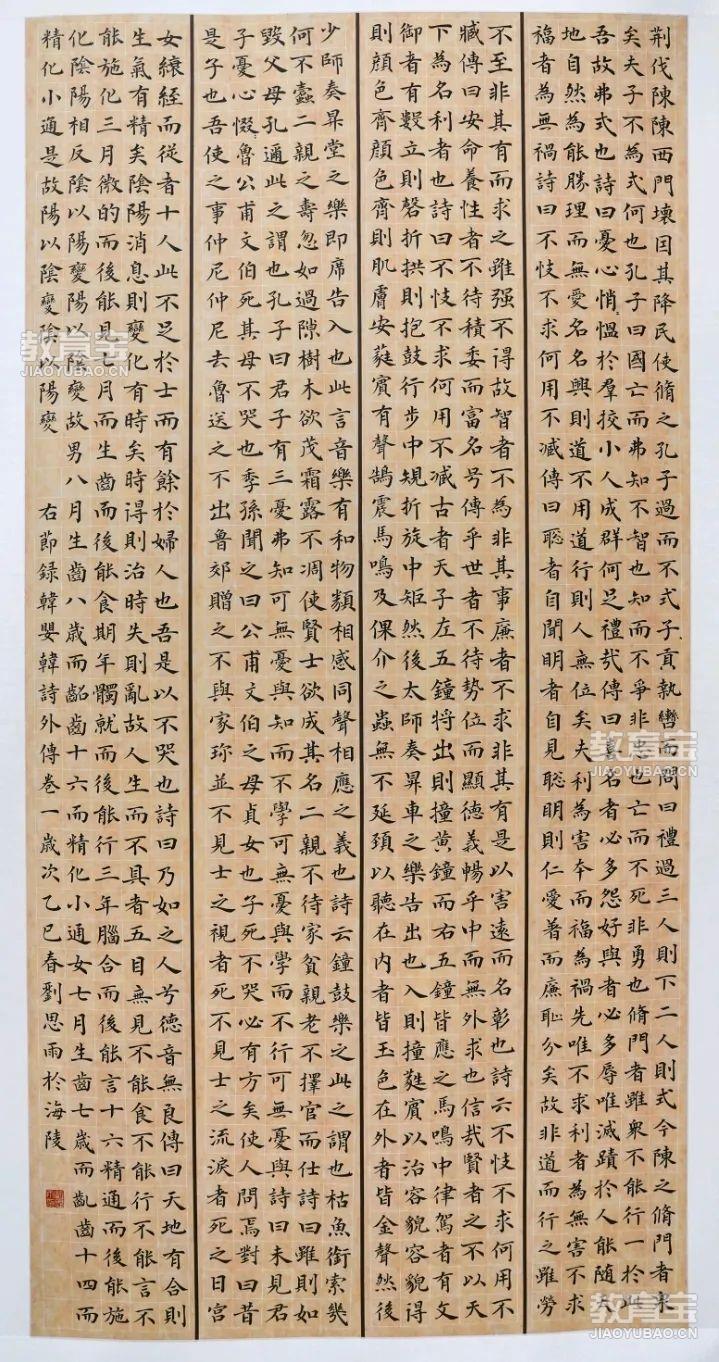 荆伐陳陳西門壞因其降民使脩之孔子過而不式子貢執轡而問曰禮過三人則下二人則式今陳之脩門者衆
矣夫子不為式何也孔子曰國亡而弗知不智也知而不爭非忠也亡而不死非勇也脩門者雖衆不能行一於此
吾故弗式也詩曰憂心悄慍於羣小人成群何足禮哉傳曰喜名者必多怨好與者必多辱唯滅蹟於人能隨天
地自然為能勝理而無愛名名興則道不用道行則人無位矣夫利為害本而福為禍先唯不求利者為無害不求
福者為無禍詩曰不忮不求何用不減傳曰聡者自聞明者自見聡明則仁愛著而廉恥分矣故非道而行之雖勞
不至非其有而求之雖强不得故智者不為非其事廉者不求非其有是以害遠而名彰也詩云不忮不求何用不
臧傳曰安命養性者不待積委而富名号傳乎世者不待勢位而顯德義暢乎中而無外求也信哉賢者之不以天
下為名利者也詩曰不忮不求何用不臧古者天子左五鐘將出則撞黄鐘而右五鐘皆應之馬鳴中律駕者有文
御者有數立則磬折拱則抱鼓行步中規折旋中矩然後太師奏昇車之樂告出也入則撞蕤賓以治容貌容貌得
則顔色齊顔色齊則肌膚安蕤賓有聲鵠震馬鳴及倮介之蟲無不延頚以聽在内者皆玉色在外者皆金聲然後
少師奏昇堂之樂即席告入也此言音樂有和物類相感同聲相應之義也詩云鐘鼓樂之此之謂也枯魚銜索幾
何不蠹二親之壽忽如過隙樹木欲茂霜露不凋使賢士欲成其名二親不待家貧親老不擇官而仕詩曰雖則如
毀父母孔邇此之謂也孔子曰君子有三憂弗知可無憂與知而不學可無憂與學而不行可無憂與詩曰未見君
子憂心惙魯公甫文伯死其母不哭也季孫聞之曰公甫文伯之母貞女也子死不哭必有方矣使人問焉對曰昔
是子也吾使之事仲尼仲尼去魯送之不出魯郊贈之不與家珍並不見士之視者死不見士之流淚者死之日宮
女縗絰而從者十人此不足於士而有餘於婦人也吾是以不哭也詩曰乃如之人兮德音無良傳曰天地有合則
生氣有精矣陰陽消息則變化有時矣時得則治時失則亂故人生而不具者五目無見不能食不能行不能言不
能施化三月徹的而後能見七月而生齒而後能食期年髑就而後能行三年腦合而後能言十六精通而後能施
化陰陽相反陰以陽變陽以陰變故男八月生齒八歲而齠齒十六而精化小通女七月生齒七歲而齔齒十四而
精化小通是故陽以陰變陰以陽變 右節録韓嬰韓詩外傳卷一歲次乙巳春劉思雨於海陵
教育宝
JIAOYUBAO.CN
教育宝
JIAOYUBAO.CN
教育宝
JIAOYUBAO.CN
教育宝
JIAOYUBAO.CN